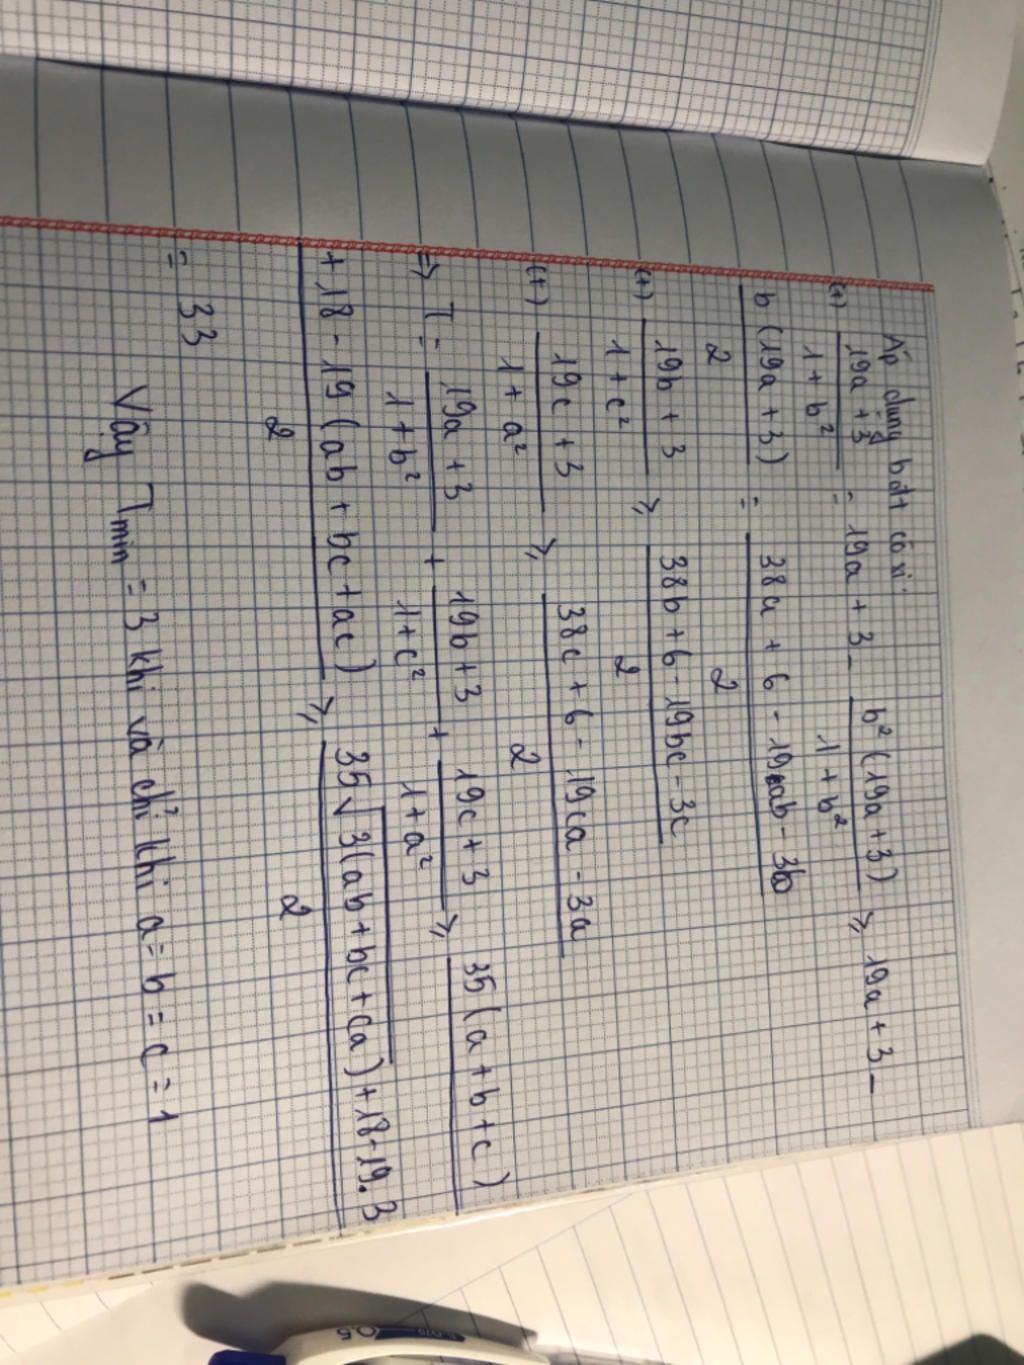 Áp dụng bđt cô si:
(+) 19a + 3 / 1 + b² = 19a + 3 - b² (19a + 3) / 1 + b² ≥ 19a + 3 -
b (19a + 3) / 2 = 38a + 6 - 19ab - 3b / 2
(+) 19b + 3 / 1 + c² ≥ 38b + 6 - 19bc - 3c / 2
(+) 19c + 3 / 1 + a² ≥ 38c + 6 - 19ca - 3a / 2
=> T = 19a + 3 / 1 + b² + 19b + 3 / 1 + c² + 19c + 3 / 1 + a² ≥ 35 (a + b + c)
+ 18 - 19 (ab + bc + ac) / 2 ≥ 35√3(ab + bc + ca) + 18 - 19.3 / 2
= 33
Vậy Tmin = 3 khi và chỉ khi a = b = c = 1
0,5